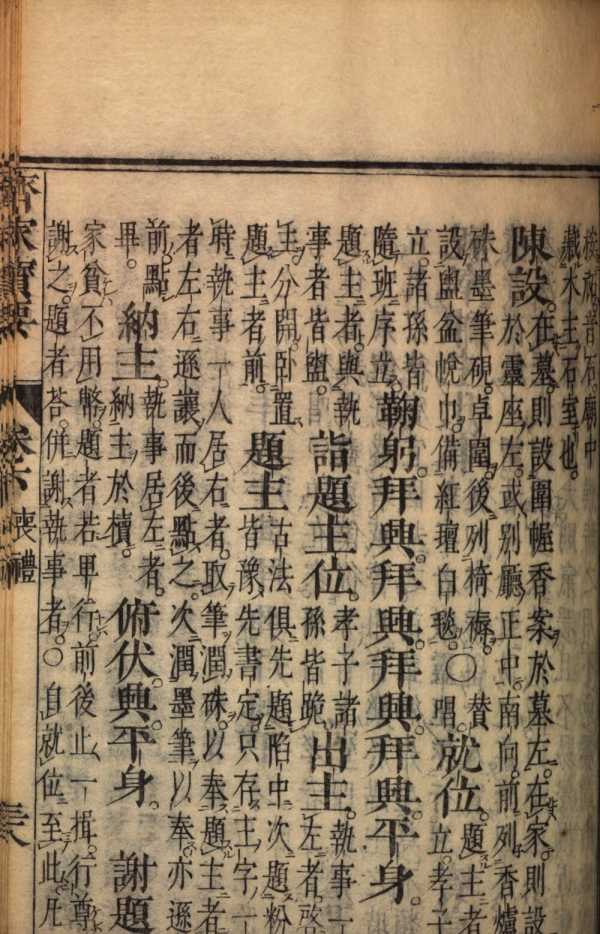 藏木主石室也。
陳設。在墓。則設圍幄香案於墓左。在家。則設
於靈座左。或别廳正中。南向。前列香爐
硃墨筆硯。卓圍。後列椅褥。〇贊就位。題主者
設盥盆帨巾。備紅白毯。唱立孝子
立。諸孫皆鞠躬。拜興。拜興。拜興。拜興。平身。
隨班序立。
題主者與執詣題主位。孝子諸出主。執事一
事者皆盥。孫皆跪左者啓
主分開。卧置題主古法俱先題陷中。次題粉
題主者前。皆豫先書定。只存主字一
時執事一人居右者取筆潤硃。以奉題主者
者左右遜讓而後點之。次潤墨筆以奉。亦遜
前。點納主。執事居左者。俯伏。興。平身。謝題
畢。納主於櫝。
家貧不用幣。題者若卑行。前後止一揖。行尊
謝之。題者荅。併謝執事者。〇自就位至此。凡
齊家寶要 卷六 喪禮